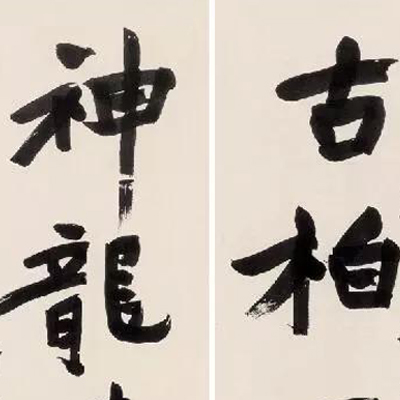 古柏
神龍